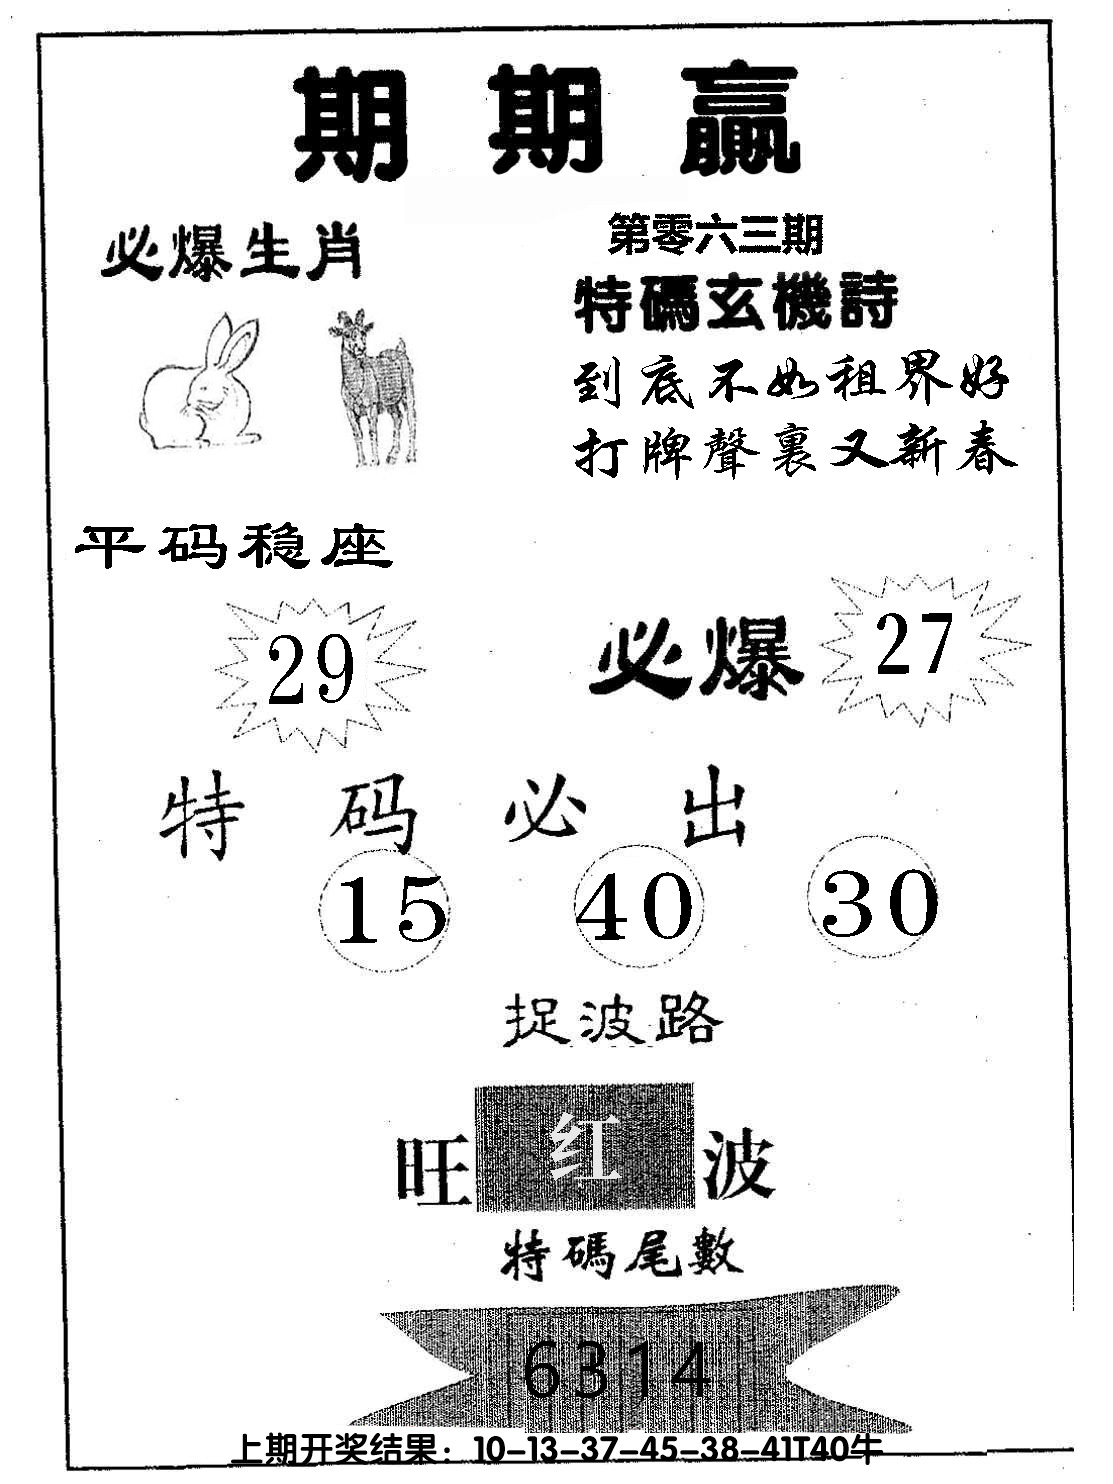 期期贏
必爆生肖
第零六三期
特碼玄機詩
到底不如租界好
打牌聲裏又新春
平码稳座
29
必爆
27
特码必出
15 40 30
捉波路
旺红波
特碼尾數
6314
上期开奖结果：10-13-37-45-38-41T40牛